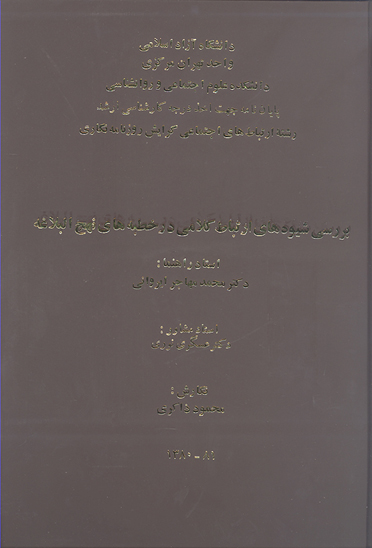 دانشگاه آزاد اسلامی
واحد تهران مرکزی
دانشکده علوم اجتماعی و روانشناسی
پایان نامه جهت اخذ درجه کارشناسی ارشد
رشته ارتباط های اجتماعی گرایش روزنامه نگاری
بررسی شیوه های ارتباط کلامی در خطبه های نهج البلاغه
استاد راهنما :
دکتر محمد مهاجر ایروانی
استاد مشاور :
دکتر عسگری نوری
نگارش :
محمود ذاکری